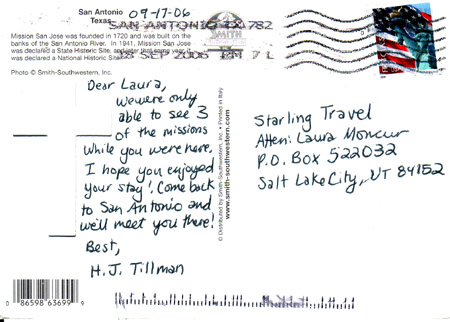 San Antonio
Texas
09-17-06
SAN ANTONIO TX 782
18 SEP 2006 PM 7 L
Mission San Jose was founded in 1720 and was built on the
banks of the San Antonio River. In 1941, Mission San Jose
was declared a State Historic Site, and later that same year, it
was declared a National Historic Site.
Photo © Smith-Southwestern, Inc.
Dear Laura,
We were only
able to see 3
of the missions
while you were here.
I hope you enjoyed
your stay! Come back
to San Antonio and
we'll meet you there!
Best,
H.J. Tillman
© Distributed by Smith-Southwestern, Inc. • Printed in Italy
www.smith-southwestern.com
Starling Travel
Atten: Laura Moncur
P.O. Box 522032
Salt Lake City, UT 84152
0 86598 63699 9